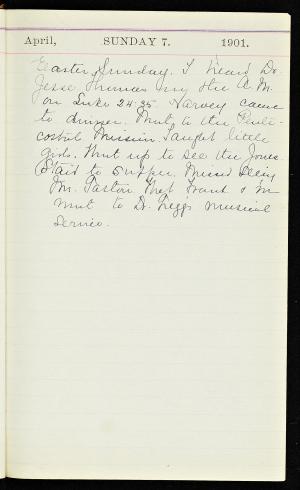 April, SUNDAY 7. 1901.
Easter Sunday. I heard Dr.
Jesse Thomas my the A.M.
on Luke 24-35. Harvey came
to dinner. Went to the Pente-
costal Mission. Taught little
girls. Went up to see the Jones.
Staid to supper. Missed seeing
Mr. Paxton. They Frank & I
went to Dr. musical
service.